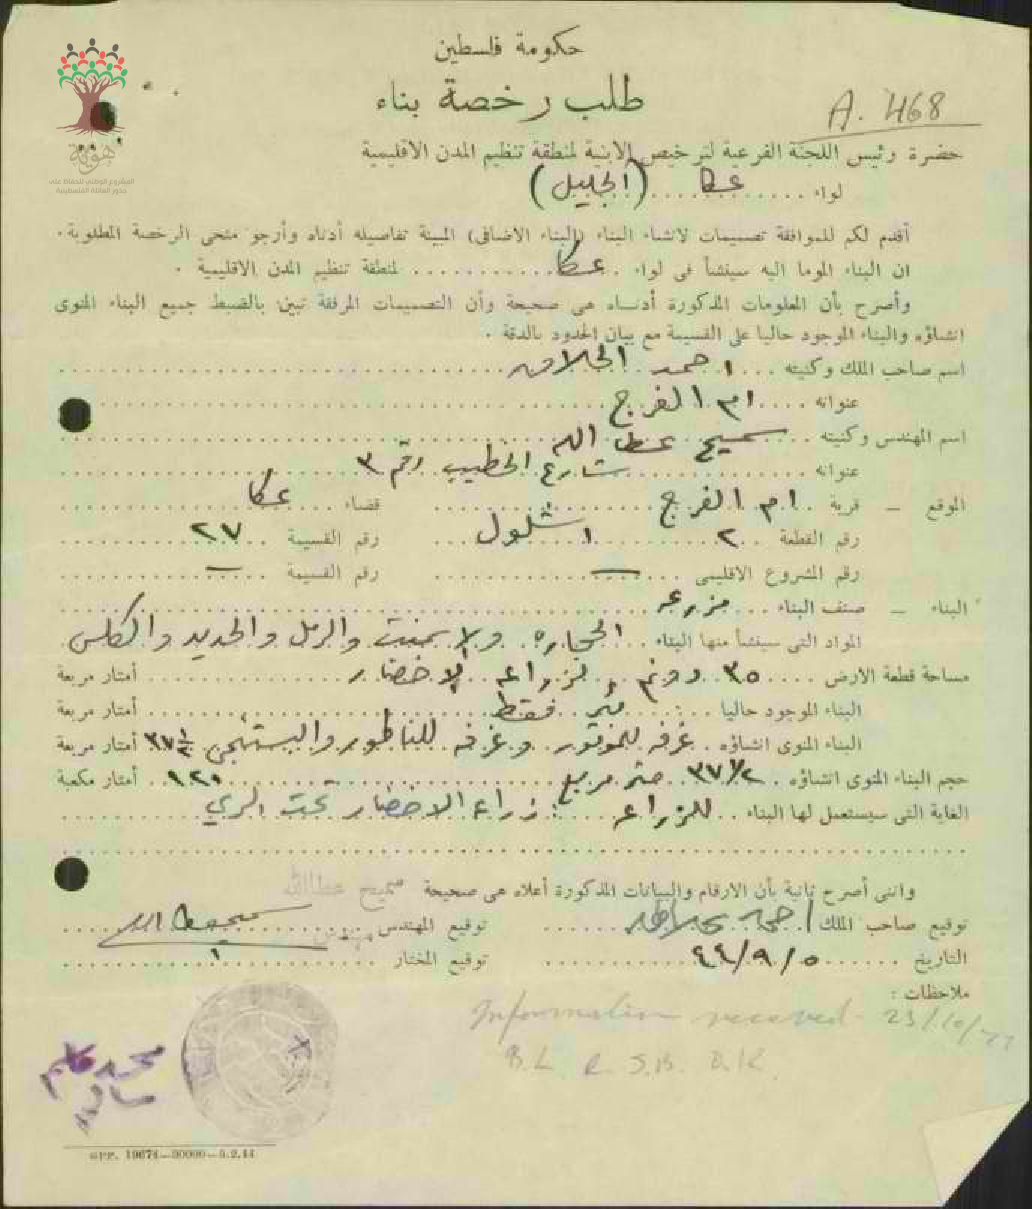 حكومة فلسطين
طلب رخصة بناء
A. 468
هوية
المشروع الوطني للحفاظ على
جذور العائلة الفلسطينية
حضرة رئيس اللجنة الفرعية لترخيص الابنية لمنطقة تنظيم المدن الاقليمية
لواء عكا (الجليل)
أقدم لكم للموافقة تصميمات لانشاء البناء (البناء الاضافي) المبينة تفاصيله أدناه وأرجو منحي الرخصة المطلوبة.
ان البناء الموما اليه سينشأ في لواء عكا لمنطقة تنظيم المدن الاقليمية .
وأصرح بأن المعلومات المذكورة أدناه هي صحيحة وأن التصميمات المرفقة تبين بالضبط جميع البناء المنوى
انشاؤه والبناء الموجود حاليا على القسيمة مع بيان الحدود بالدقة .
اسم صاحب الملك وكنيته احمد الحلاق
عنوانه ام الفرج
اسم المهندس وكنيته سميح عطا الله
عنوانه شارع الخطيب رقم ٣
الموقع — قرية ام الفرج قضاء عكا
رقم القطعة ٢ شلول رقم القسيمة ٢٧
رقم المشروع الاقليمي — رقم القسيمة —
البناء — صنف البناء مزرعه
المواد التي سينشأ منها البناء الحجاره والاسمنت والرمل والحديد والكلس
مساحة قطعة الارض ٣٥ دونم لزراعة الاخضار أمتار مربعة
البناء الموجود حاليا بئر فقط أمتار مربعة
البناء المنوى انشاؤه غرفه للموتور وغرفه للناطور والبستنجي ٣٧ ١/٢ أمتار مربعة
حجم البناء المنوى انشاؤه ٣٧ ١/٢ متر مربع ١٢٠ أمتار مكعبة
الغاية التي سيستعمل لها البناء للزراعه : زراعة الاخضار تحت الري
وانني أصرح ثانية بأن الارقام والبيانات المذكورة أعلاه هي صحيحة سميح عطاالله
توقيع صاحب الملك توقيع المهندس سميح عطا الله
مهندس
التاريخ ٤٤/٩/٥ توقيع المختار
ملاحظات :
Information received 23/10/44
B.L. R. S.B. D.K.
GPP. 19674—30000—5.2.44